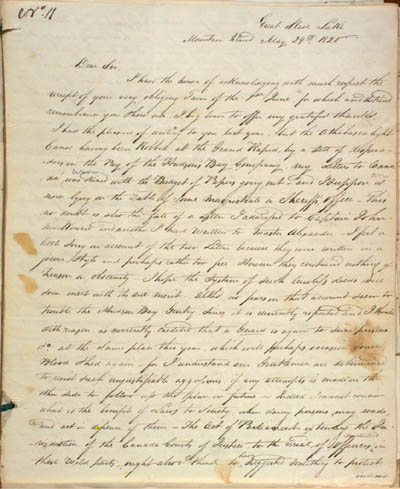 No. 11
Great Slave Lake
Mountain Island May 24th 1820
Dear Sir,
I have the honor of acknowledging with much respect the
receipt of your very obliging Favor of the 1st June for which and the kind
remembrance you shew me I beg leave to offer my grateful thanks.
I had the pleasure of writing to you last year, but the Athabasca light
Canoe having been Robbed at the Grand Rapid, by a sett of Desperadoes
in the Pay of the Hudsons Bay Company, my Letters to Canada
was seized with the Budget of Papers going out and I suppose is now
lying on the Table of some Magistrate or Sheriffs office - This
no doubt is also the fate of a letter I addressed to Captain
and another I had written to Master Alexander - I feel a
Sorry on account of the two Letters because they were written in a
Style and perhaps rather too free However they contained nothing of
Treason or obscenity - I hope the System of such lawless deeds will
soon meet with its due merit - Altho no person that account seem to
trouble the Hudson Bay Gentry Since it is currently reported and I
with reason as currently credited that a Guard is again to seize persons
&c at the same place this year, which will perhaps occasion some
Blood Shed again - for I understand our Gentlemen are determined
to resist such unjustifiable aggressions if any attempt is made on the
other side to follow up this plan in future - Indeed I cannot know
what is the benefit of Laws to Society when daring persons may evade
and act in defiance of them - The Act of Parliament extending the Jurisdiction
of the Canada Courts of Justice to the Trial of offences, in
these wild parts, might above have Something to protest